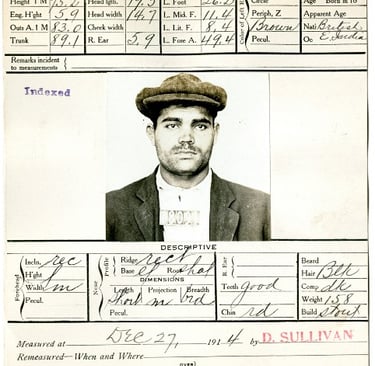 Height 1 M Head lgth. L. Foot Circle Age Born in
Eng. Hght 5.9 Head width 14,7 L. Mid. F. 11,4 Periph, Z Apparent Age
Outs A. 1 M 83.0 Cheek width L. Lit. F. 8,4 Brown Nati British
Trunk 89,1 R. Ear 5.9 L. Fore A. 49,4 Pecul. Oc E. India
Color of Left
Remarks incident
to measurements
Indexed
DESCRIPTIVE
Forehead Incln. rec Nose Profile Ridge rect R. Ear Beard
H'ght Base Root Hair Blk
Width m DIMENSIONS Teeth good Comp dk
Pecul. Length Projection Breadth Weight 158
Short m Chin rd Build stout
Measured at Dec 27, 1914 by D. SULLIVAN
Remeasured—When and Where
(OVER)